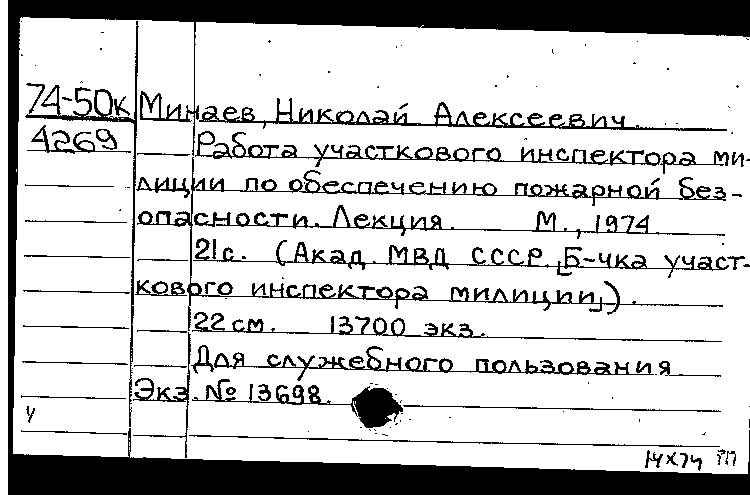 74-50к Минаев, Николай Алексеевич.
4269 Работа участкового инспектора ми-
лиции по обеспечению пожарной без-
опасности. Лекция. М., 1974.
21 с. (Акад. МВД СССР. [Б-чка участ-
кового инспектора милиции]).
22 см. 13700 экз.
Для служебного пользования
Экз. № 13698.
14X74